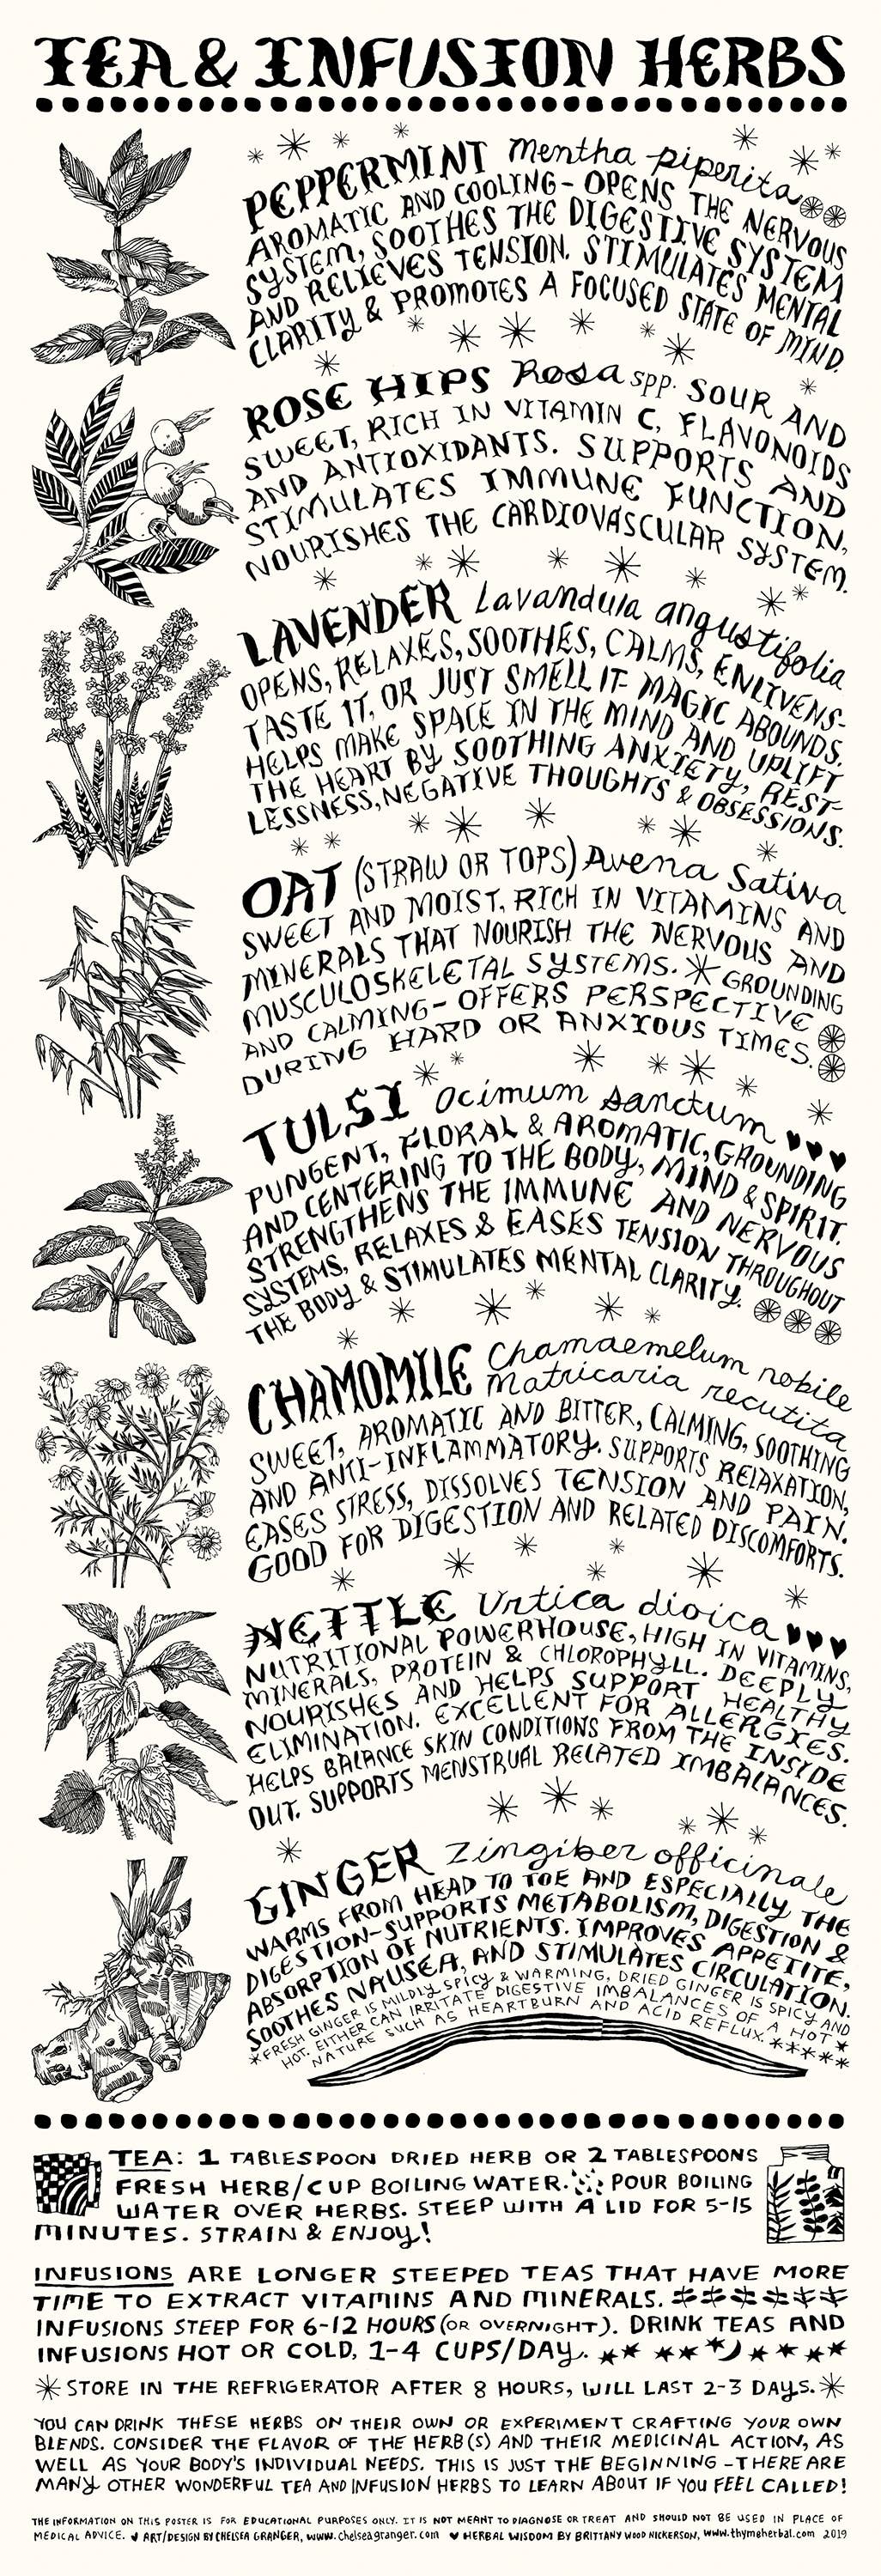 TEA & INFUSION HERBS
PEPPERMINT Mentha piperita
AROMATIC AND COOLING- OPENS THE NERVOUS
SYSTEM, SOOTHES THE DIGESTIVE SYSTEM
AND RELIEVES TENSION. STIMULATES MENTAL
CLARITY & PROMOTES A FOCUSED STATE OF MIND.
ROSE HIPS Rosa spp. SOUR AND
SWEET, RICH IN VITAMIN C, FLAVONOIDS
AND ANTIOXIDANTS. SUPPORTS AND
STIMULATES IMMUNE FUNCTION,
NOURISHES THE CARDIOVASCULAR SYSTEM.
LAVENDER Lavandula angustifolia
OPENS, RELAXES, SOOTHES, CALMS, ENLIVENS-
TASTE IT, OR JUST SMELL IT- MAGIC ABOUNDS.
HELPS MAKE SPACE IN THE MIND AND UPLIFT
THE HEART BY SOOTHING ANXIETY, REST-
LESSNESS, NEGATIVE THOUGHTS & OBSESSIONS.
OAT (STRAW OR TOPS) Avena Sativa
SWEET AND MOIST, RICH IN VITAMINS AND
MINERALS THAT NOURISH THE NERVOUS AND
MUSCULOSKELETAL SYSTEMS. * GROUNDING
AND CALMING- OFFERS PERSPECTIVE
DURING HARD OR ANXIOUS TIMES.
TULSI Ocimum sanctum ♥♥♥
PUNGENT, FLORAL & AROMATIC, GROUNDING
AND CENTERING TO THE BODY, MIND & SPIRIT.
STRENGTHENS THE IMMUNE AND NERVOUS
SYSTEMS, RELAXES & EASES TENSION THROUGHOUT
THE BODY & STIMULATES MENTAL CLARITY.
CHAMOMILE Chamaemelum nobile
Matricaria recutita
SWEET, AROMATIC AND BITTER, CALMING, SOOTHING
AND ANTI-INFLAMMATORY. SUPPORTS RELAXATION,
EASES STRESS, DISSOLVES TENSION AND PAIN.
GOOD FOR DIGESTION AND RELATED DISCOMFORTS.
NETTLE Urtica dioica ♥♥♥
NUTRITIONAL POWERHOUSE, HIGH IN VITAMINS,
MINERALS, PROTEIN & CHLOROPHYLL. DEEPLY
NOURISHES AND HELPS SUPPORT HEALTHY
ELIMINATION. EXCELLENT FOR ALLERGIES.
HELPS BALANCE SKIN CONDITIONS FROM THE INSIDE
OUT. SUPPORTS MENSTRUAL RELATED IMBALANCES.
GINGER Zingiber officinale
WARMS FROM HEAD TO TOE AND ESPECIALLY THE
DIGESTION-SUPPORTS METABOLISM, DIGESTION &
ABSORPTION OF NUTRIENTS. IMPROVES APPETITE,
SOOTHES NAUSEA, AND STIMULATES CIRCULATION.
*FRESH GINGER IS MILDLY SPICY & WARMING, DRIED GINGER IS SPICY AND
HOT. EITHER CAN IRRITATE DIGESTIVE IMBALANCES OF A HOT
NATURE SUCH AS HEARTBURN AND ACID REFLUX.
TEA: 1 TABLESPOON DRIED HERB OR 2 TABLESPOONS
FRESH HERB/CUP BOILING WATER. POUR BOILING
WATER OVER HERBS. STEEP WITH A LID FOR 5-15
MINUTES. STRAIN & ENJOY!
INFUSIONS ARE LONGER STEEPED TEAS THAT HAVE MORE
TIME TO EXTRACT VITAMINS AND MINERALS.
INFUSIONS STEEP FOR 6-12 HOURS (OR OVERNIGHT). DRINK TEAS AND
INFUSIONS HOT OR COLD, 1-4 CUPS/DAY.
*STORE IN THE REFRIGERATOR AFTER 8 HOURS, WILL LAST 2-3 DAYS.*
YOU CAN DRINK THESE HERBS ON THEIR OWN OR EXPERIMENT CRAFTING YOUR OWN
BLENDS. CONSIDER THE FLAVOR OF THE HERB(S) AND THEIR MEDICINAL ACTION, AS
WELL AS YOUR BODY'S INDIVIDUAL NEEDS. THIS IS JUST THE BEGINNING -THERE ARE
MANY OTHER WONDERFUL TEA AND INFUSION HERBS TO LEARN ABOUT IF YOU FEEL CALLED!
THE INFORMATION ON THIS POSTER IS FOR EDUCATIONAL PURPOSES ONLY. IT IS NOT MEANT TO DIAGNOSE OR TREAT AND SHOULD NOT BE USED IN PLACE OF
MEDICAL ADVICE. ♥ ART/DESIGN BY CHELSEA GRANGER, www.chelseagranger.com ♥ HERBAL WISDOM BY BRITTANY WOOD NICKERSON, www.thymeherbal.com 2019